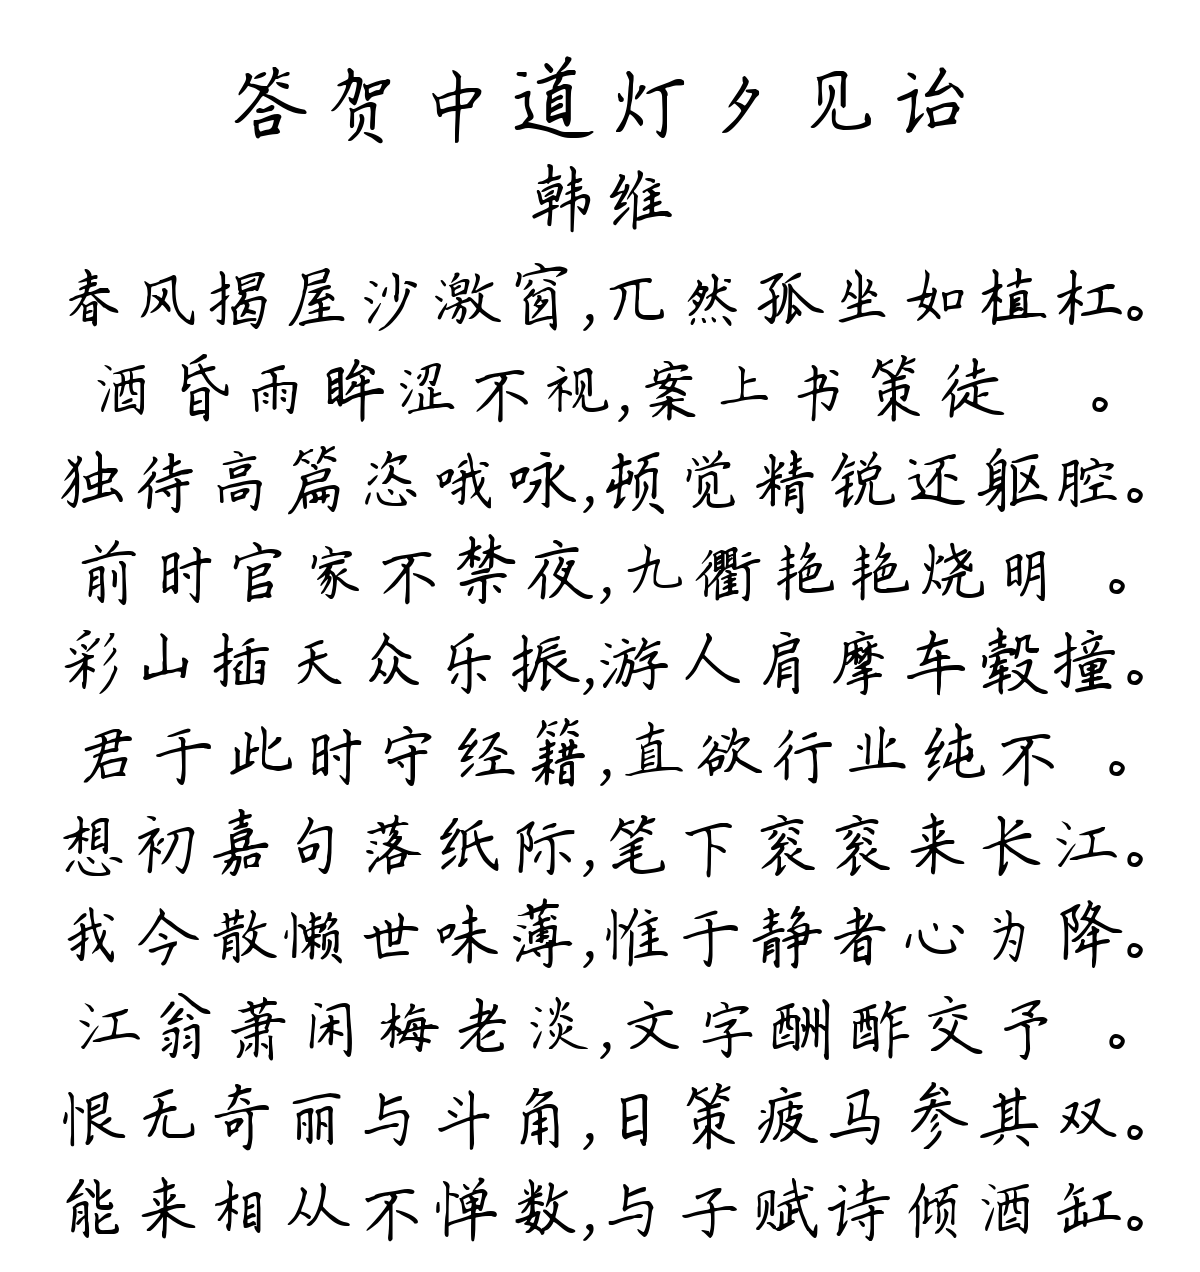 答贺中道灯夕见诒
韩维
春风揭屋沙激窗,兀然孤坐如植杠。
酒昏雨眸涩不视,案上书策徒 。
独待高篇恣哦咏,顿觉精锐还躯腔。
前时官家不禁夜,九衢艳艳烧明 。
彩山插天众乐振,游人肩摩车毂撞。
君于此时守经籍,直欲行业纯不 。
想初嘉句落纸际,笔下衮衮来长江。
我今散懒世味薄,惟于静者心为降。
江翁萧闲梅老淡,文字酬酢交予 。
恨无奇丽与斗角,日策疲马参其双。
能来相从不惮数,与子赋诗倾酒缸。